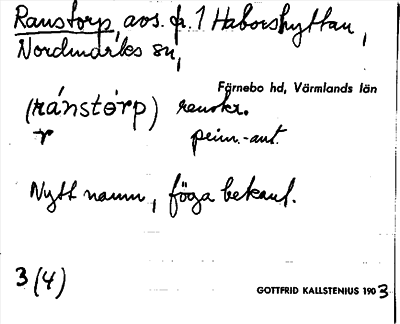 Ranstorp, avs. fr. 1 Haborshyttan,
Nordmarks sn,
Färnebo hd, Värmlands län
(ránstòrp) renskr.
r prim.-ant.
Nytt namn, föga bekant.
3 (4)
GOTTFRID KALLSTENIUS 1903